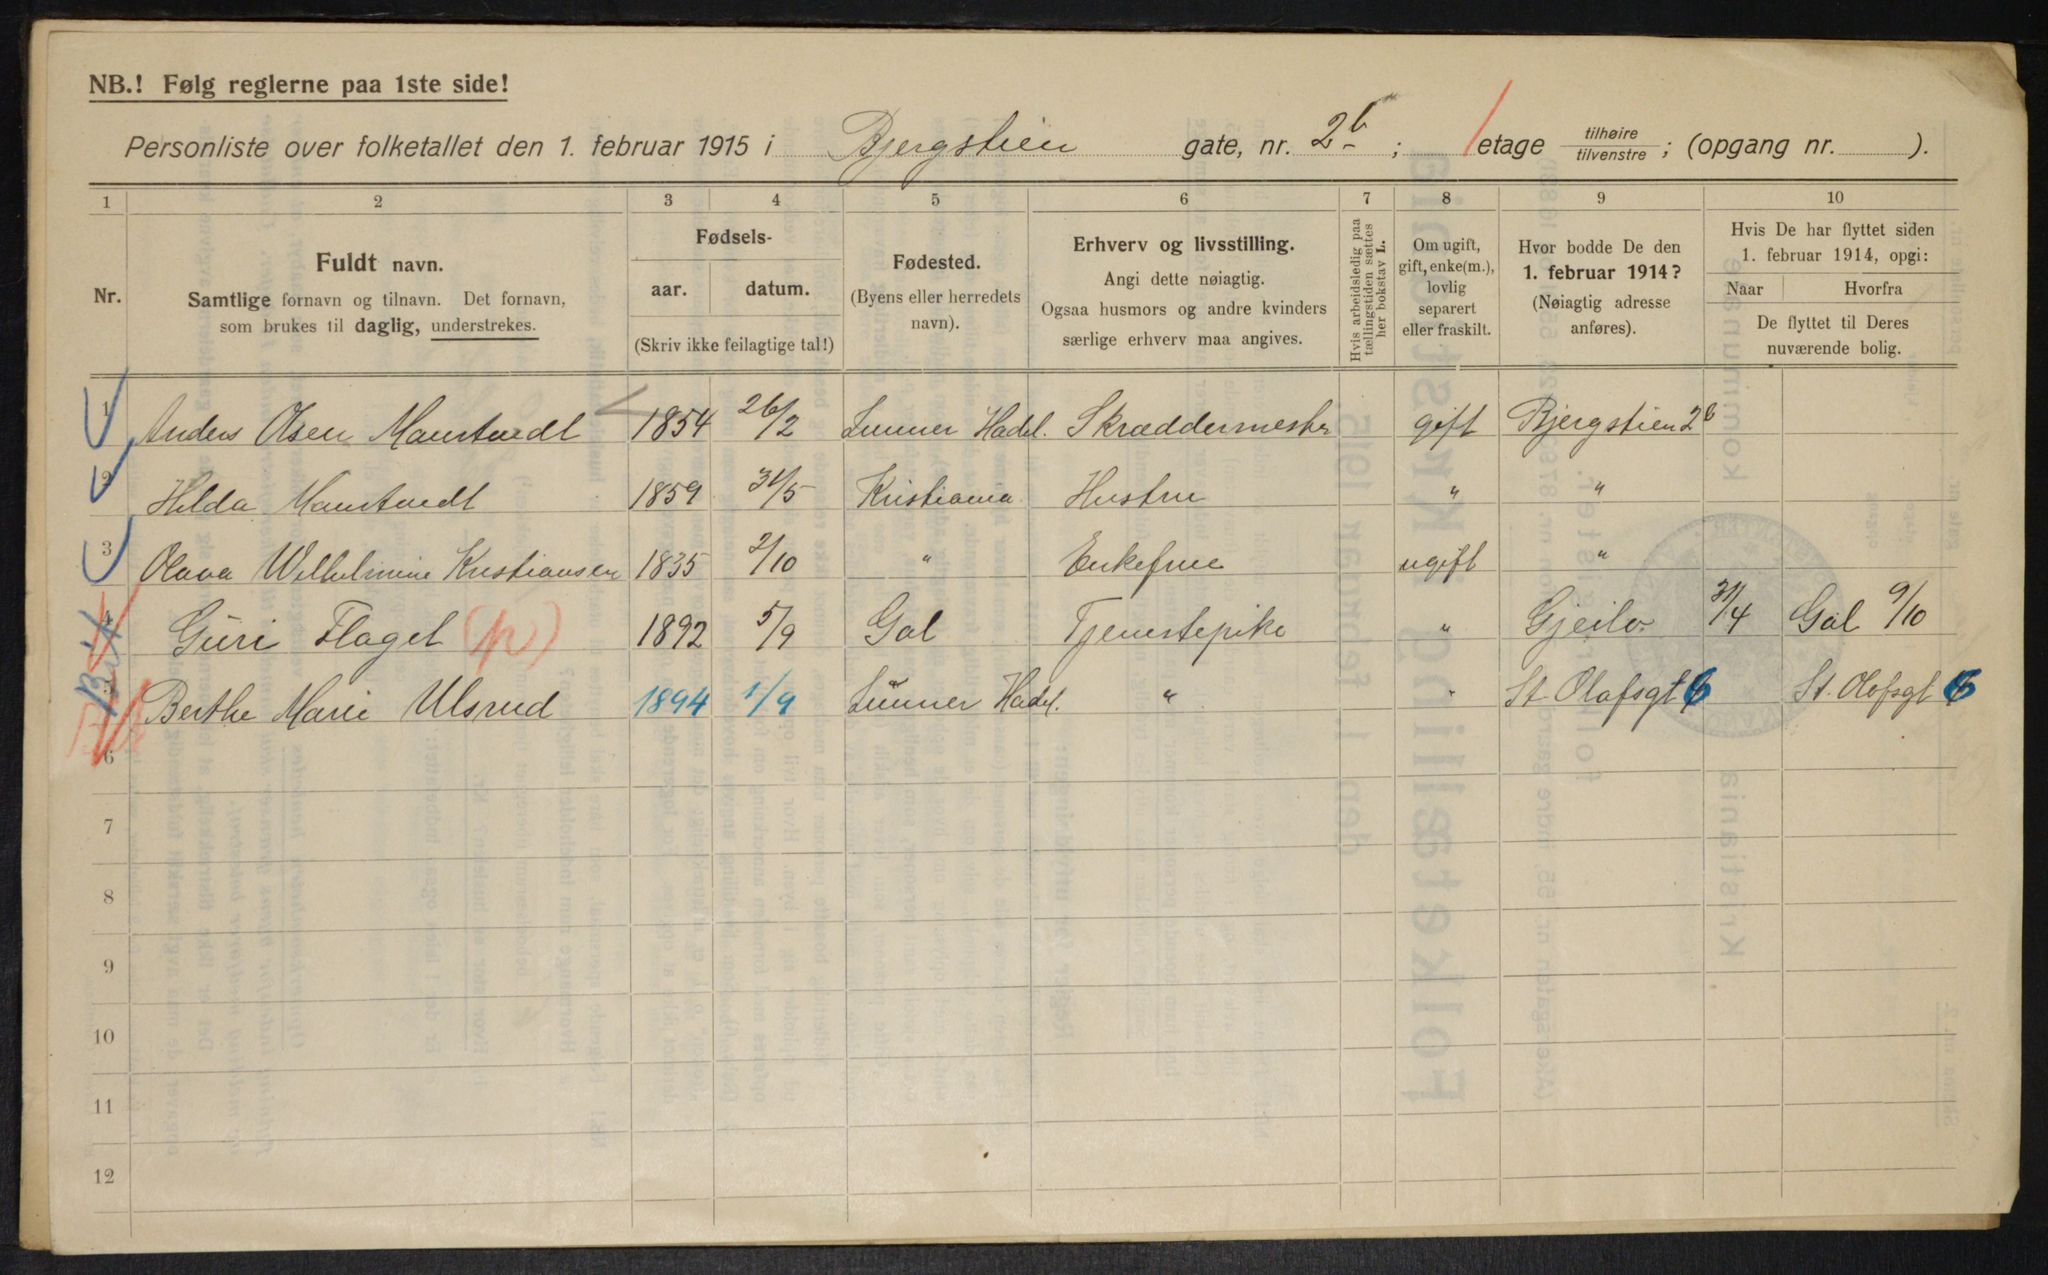 NB.! Følg reglerne paa 1ste side!
Personliste over folketallet den 1. februar 1915 i Bjergstien gate, nr. 2b; 1 etage tilhøire tilvenstre; (opgang nr. ).
1 2 3 4 5 6 7 8 9 10
Nr.
Fuldt navn.
Samtlige fornavn og tilnavn. Det fornavn,
som brukes til daglig, understrekes.
Fødsels-
aar. datum.
(Skriv ikke feilagtige tal!)
Fødested.
(Byens eller herredets
navn).
Erhverv og livsstilling.
Angi dette nøiagtig.
Ogsaa husmors og andre kvinders
særlige erhverv maa angives.
Hvis arbeidsledig paa
tællingstiden sættes
her bokstav L.
Om ugift,
gift, enke(m.),
lovlig
separert
eller fraskilt.
Hvor bodde De den
1. februar 1914?
(Nøiagtig adresse
anføres).
Hvis De har flyttet siden
1. februar 1914, opgi:
Naar Hvorfra
De flyttet til Deres
nuværende bolig.
1 Anders Olsen 1854 26/2 Lunner Hadel. Skræddermester gift Bjergstien 2b
2 Hilda 1859 31/5 Kristiania Hustru " "
3 Olava Wilhelmine Kristiansen 1835 2/10 " Enkefrue ugift "
4 Guri Flaget (p) 1892 5/9 Gol Tjenestepike " Gjeilo 31/4 Gol 9/10
5 Berthe Marie Ulsrud 1894 1/9 Lunner Hadel. " " St. Olafsgt 6 St. Olofsgt 6
6
7
8
9
10
11
12